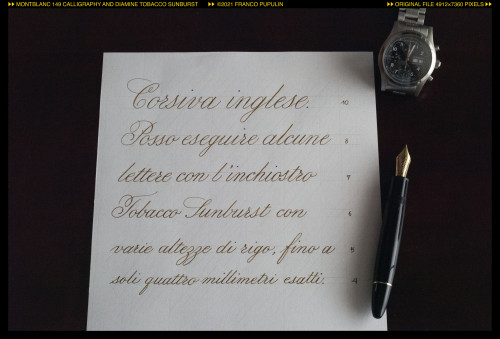 ▸▸ MONTBLANC 149 CALLIGRAPHY AND DIAMINE TOBACCO SUNBURST ▸▸ ©2021 FRANCO PUPULIN ▸▸ ORIGINAL FILE 4912×7360 PIXELS ▸▸
Corsiva inglese. 10
Posso eseguire alcune 8
lettere con l'inchiostro 7
Tobacco Sunburst con 6
varie altezze di rigo, fino a 5
soli quattro millimetri esatti. 4